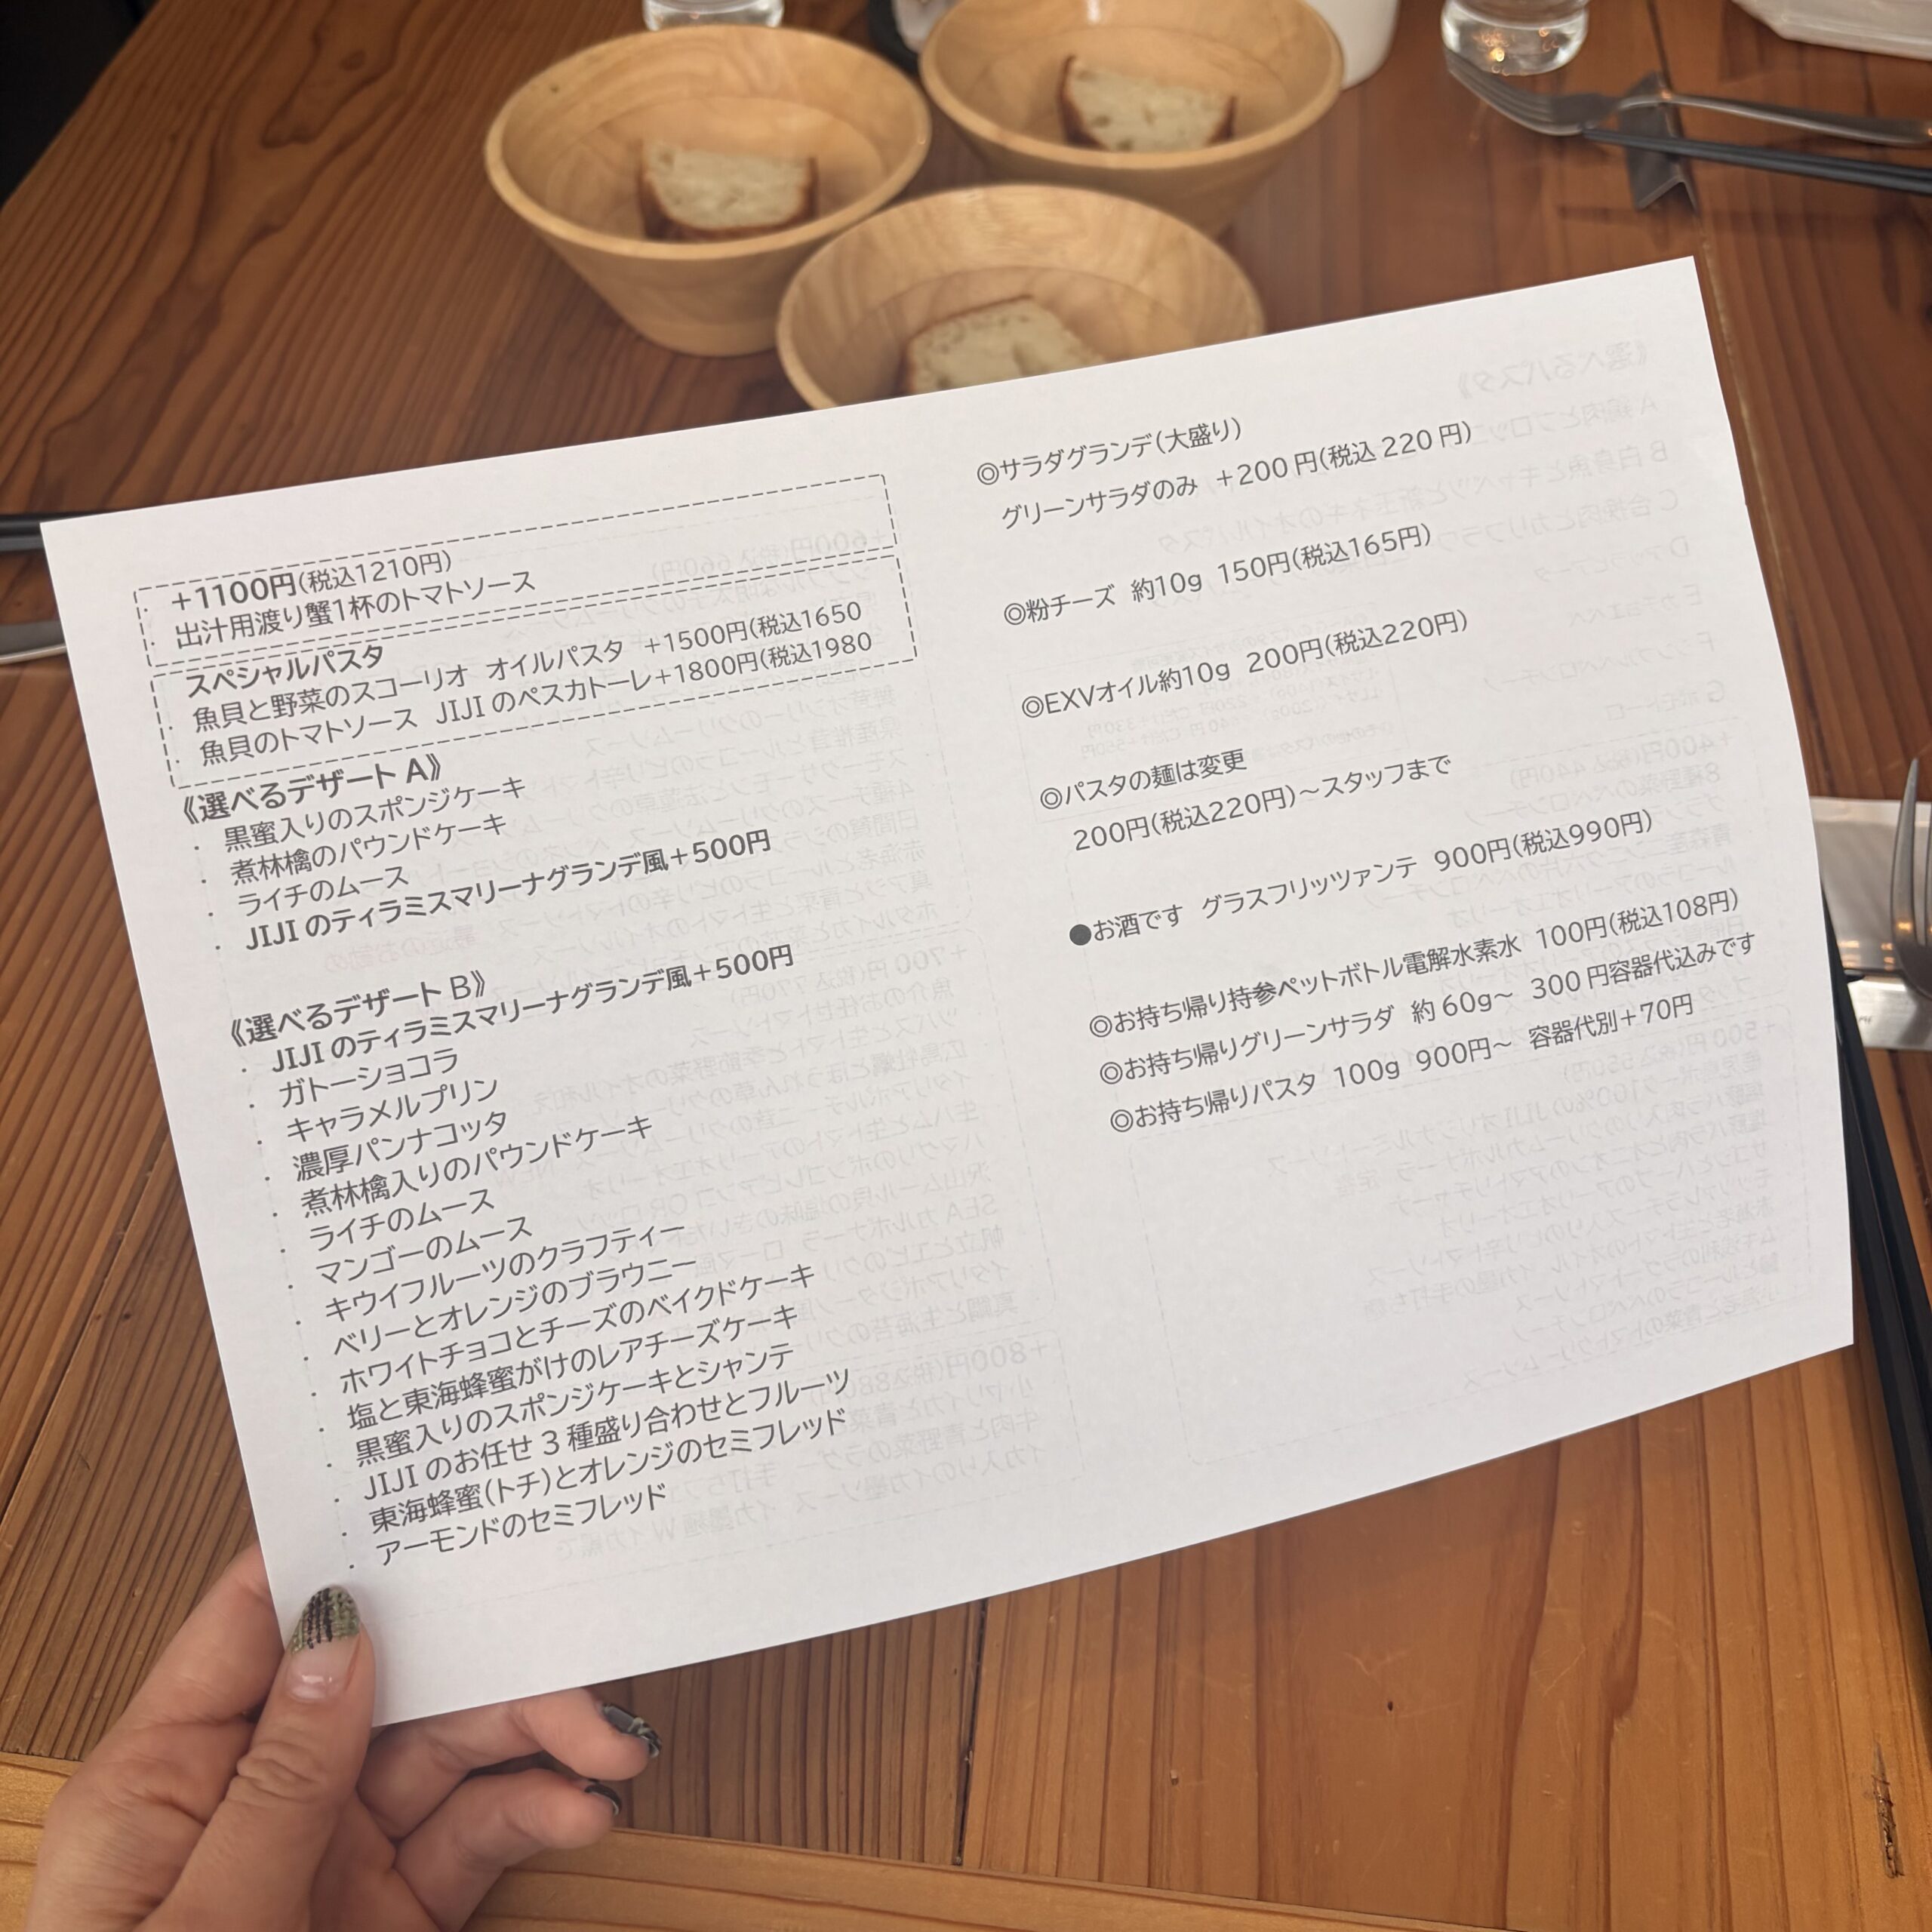 +1100円(税込1210円)
・出汁用渡り蟹1杯のトマトソース
スペシャルパスタ
・魚貝と野菜のスコーリオ オイルパスタ +1500円(税込1650
・魚貝のトマトソース JIJI のペスカトーレ+1800円(税込1980
《選べるデザート A》
・黒蜜入りのスポンジケーキ
・煮林檎のパウンドケーキ
・ライチのムース
・JIJI のティラミスマリーナグランデ風+500円
《選べるデザート B》
・JIJI のティラミスマリーナグランデ風+500円
・ガトーショコラ
・キャラメルプリン
・濃厚パンナコッタ
・煮林檎入りのパウンドケーキ
・ライチのムース
・マンゴーのムース
・キウイフルーツのクラフティー
・ベリーとオレンジのブラウニー
・ホワイトチョコとチーズのベイクドケーキ
・塩と東海蜂蜜がけのレアチーズケーキ
・黒蜜入りのスポンジケーキとシャンテ
・JIJI のお任せ 3 種盛り合わせとフルーツ
・東海蜂蜜(トチ)とオレンジのセミフレッド
・アーモンドのセミフレッド
◎サラダグランデ(大盛り)
グリーンサラダのみ +200 円(税込 220 円)
◎粉チーズ 約10g 150円(税込165円)
◎EXVオイル約10g 200円(税込220円)
◎パスタの麺は変更
200円(税込220円)~スタッフまで
●お酒です グラスフリッツァンテ 900円(税込990円)
◎お持ち帰り持参ペットボトル電解水素水 100円(税込108円)
◎お持ち帰りグリーンサラダ 約 60g~ 300 円容器代込みです
◎お持ち帰りパスタ 100g 900円~ 容器代別+70円